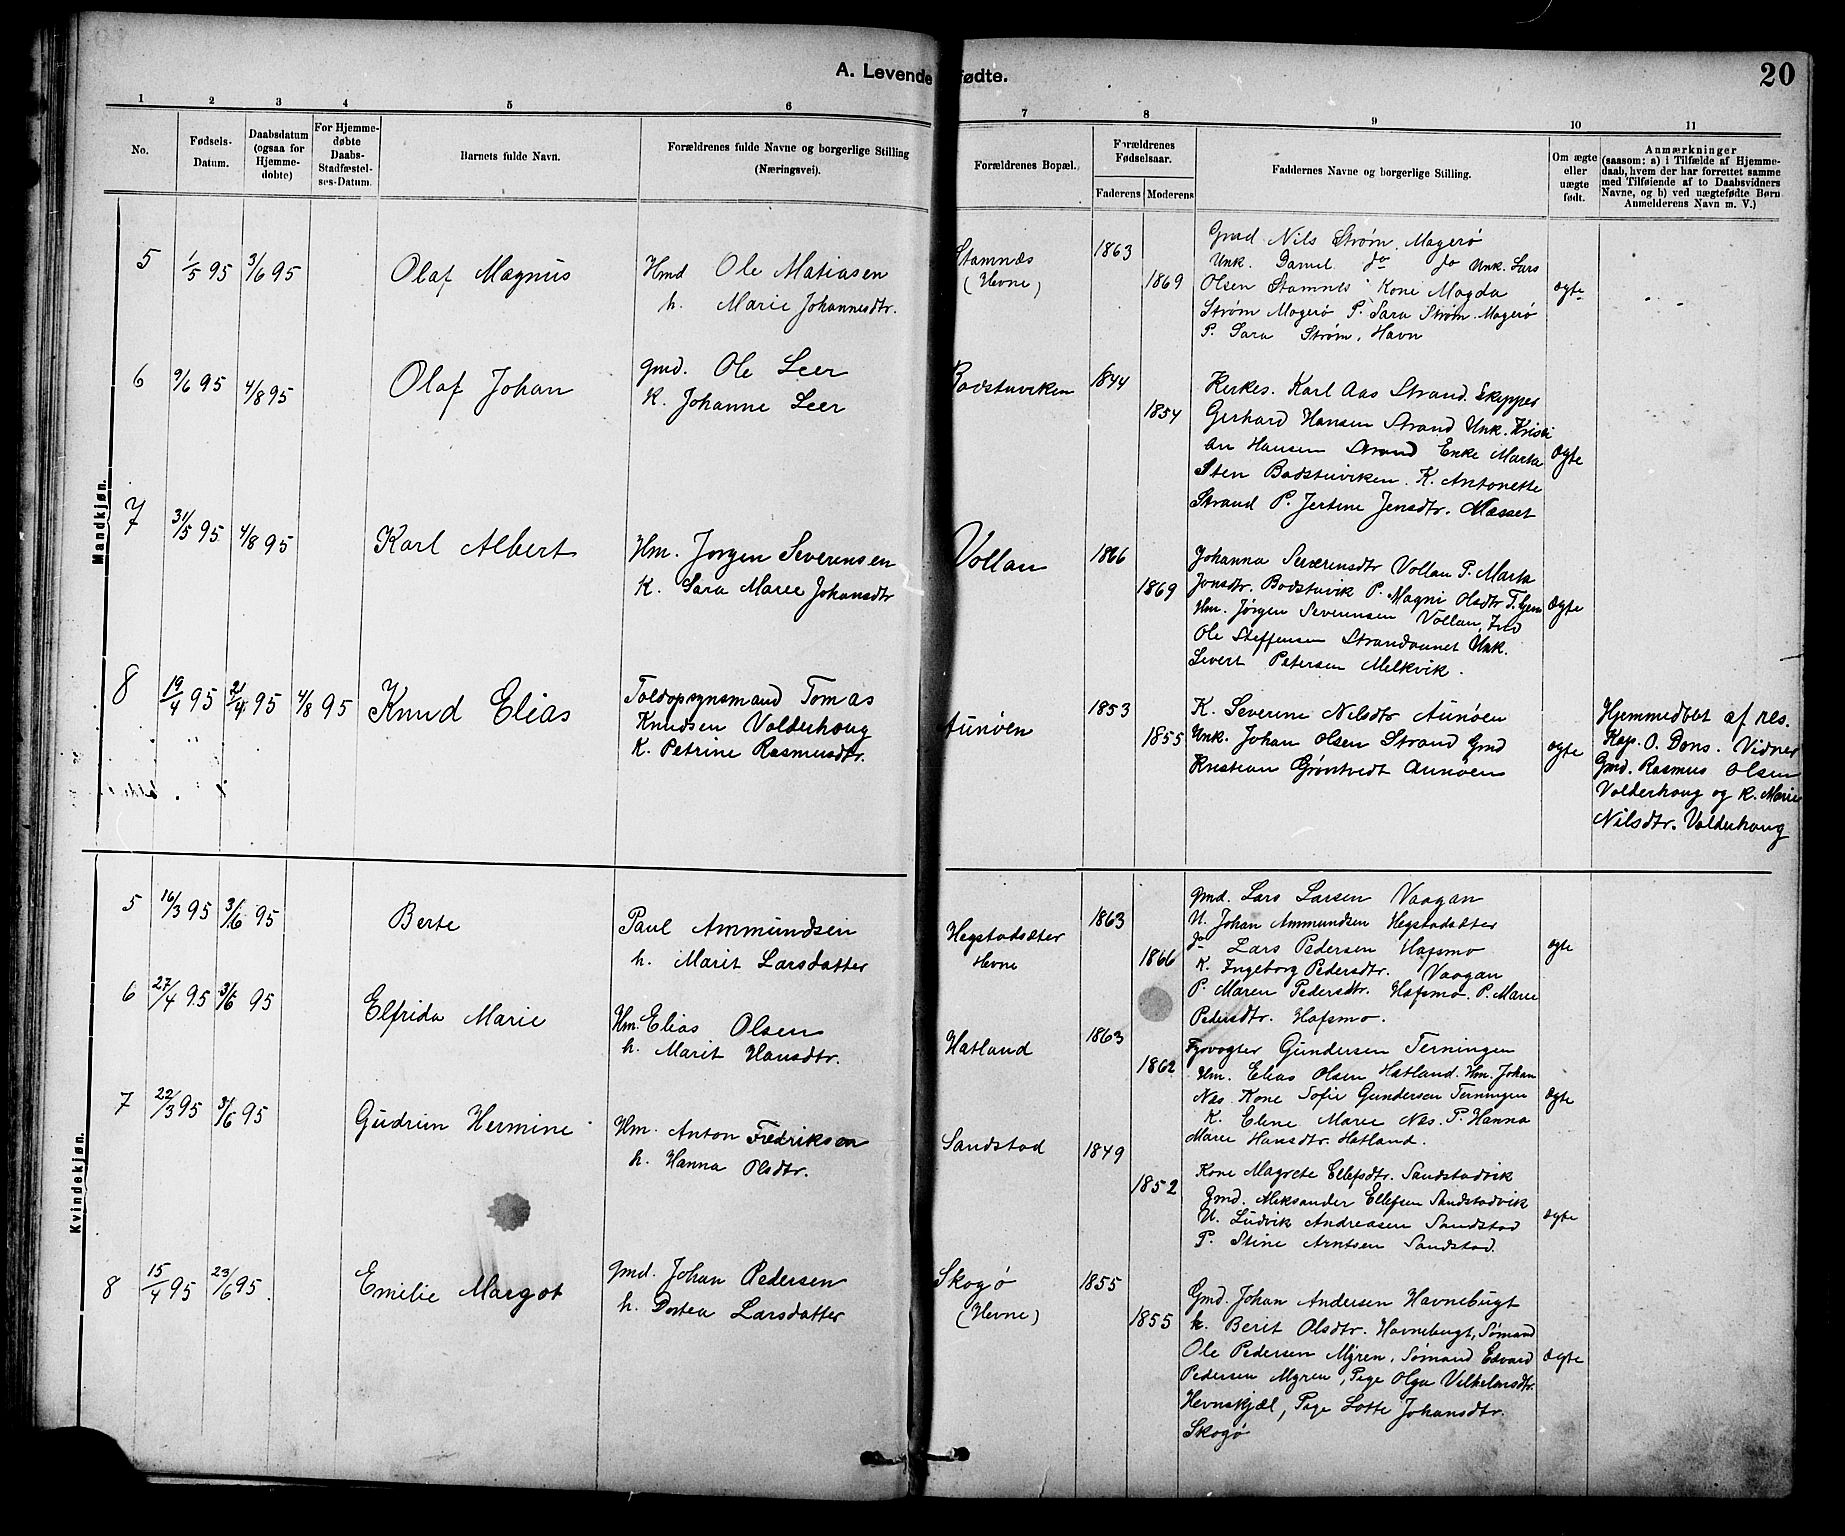 A. Levende fødte.
20
1 2 3 4 5 6 7 8 9 10 11
No.
Fødsels-
Datum.
Daabsdatum
(ogsaa for
Hjemme-
døbte)
For Hjemme-
døbte
Daabs-
Stadfæstel-
ses-Datum.
Barnets fulde Navn.
Forældrenes fulde Navne og borgerlige Stilling
(Næringsvei).
Forældrenes Bopæl.
Forældrenes
Fødselsaar.
Faderens Moderens
Faddernes Navne og borgerlige Stilling.
Om ægte
eller
uægte
født.
Anmærkninger
(saasom: a) i Tilfælde af Hjemme-
daab, hvem der har forrettet samme
med Tilføiende af to Daabsvidners
Navne, og b) ved uægtefødte Børn
Anmelderens Navn m. V.)
Mandkjøn.
5 1/5 95 3/6 95
Olaf Magnus
Hmd Ole Matiasen
h. Marie Johannesdtr.
Stamnes
(Hevne)
1863
1869
Gmd Nils Strøm, Magerø
Unk. Daniel do do Unk. Lars
Olsen Stamnes Kone Magda
Strøm Magerø P. Sara Strøm Magerø
P. Sara Strøm, Havn
ægte
6 9/6 95 4/8 95
Olaf Johan
Gmd. Ole Leer
K. Johanne Leer
Badstuviken
1844
1854
Kirkes. Karl Aas Strand. Skipper
Gerhard Hansen Strand Unk. Kristi
an Hansen Strand Enke Marta
Sten Badstuviken. K. Antonette
Strand P. Jertine Jensdtr. Masset
ægte
7 31/5 95 4/8 95
Karl Albert
Hm. Jørgen Severinsen
K. Sara Marie Johansdtr
Vollan
1866
1869
Johanna Severensdtr Vollan P. Marta
Jonsdtr. Badstuvik P. Magni Olsdtr
Hm. Jørgen Severinsen Vollan,
Ole Steffensen Strandvannet Unk.
Severt Petersen Melkvik.
ægte
8 19/4 95 21/4 95 4/8 95
Knud Elias
Toldopsynsmand Tomas
Knudsen Valderhoug
K. Petrine Rasmusdtr.
Aunøen
1853
1855
K. Severine Nilsdtr Aunøen
Unk. Johan Olsen Strand Gmd
Kristian Grøntvedt Aunøen
ægte
Hjemmedøbt af res.
Kap. O. Dons. Vidner
Gmd. Rasmus Olsen
Valderhoug og K. Marie
Nilsdtr. Valderhoug
Kvindekjøn.
5 16/3 95 3/6 95
Berte
Paul Ammundsen
h. Marit Larsdatter
Hegstadsæter
Hevne
1863
1866
Gmd. Lars Larsen Vaagan
U. Johan Ammundsen Hegstadsæter
do Lars Pedersen Hafsmo
K. Ingeborg Pedersdtr. Vaagan
P. Maren Pedersdtr. Hafsmo. P. Marie
Pedersdtr. Hafsmo.
ægte
6 27/4 95 3/6 95
Elfrida Marie
Hm. Elias Olsen
h. Marit Hansdtr.
Hatland
1863
1862
Fyrvogter Gundersen Terningen
Hm. Elias Olsen Hatland. Hm. Johan
Næs. Kone Sofie Gundersen Terningen
K. Eline Marie Næs. P. Hanna
Marie Hansdtr. Hatland.
ægte
7 22/3 95 3/6 95
Gudrun Hermine
Hm. Anton Fredriksen
h. Hanna Olsdtr.
Sandstad
1849
1852
Kone Magrete Ellefsdtr. Sandstadvik
Gmd. Aleksander Ellefsen Sandstadvik
U. Ludvik Andreasen Sandstad
P. Stine Arntsen Sandstad.
ægte
8 15/4 95 23/6 95.
Emilie Margot
Gmd. Johan Pedersen
h. Dortea Larsdatter
Skogø
(Hevne)
1855
1855
Gmd. Johan Andersen Havnebugt
K. Berit Olsdtr. Havnebugt, Sømand
Ole Pedersen Myren, Sømand Edvard
Pedersen Myren, Pige Olga Vilhelmsdtr.
Hevnskjæl, Pige Lotte Johansdtr.
Skogø
ægte